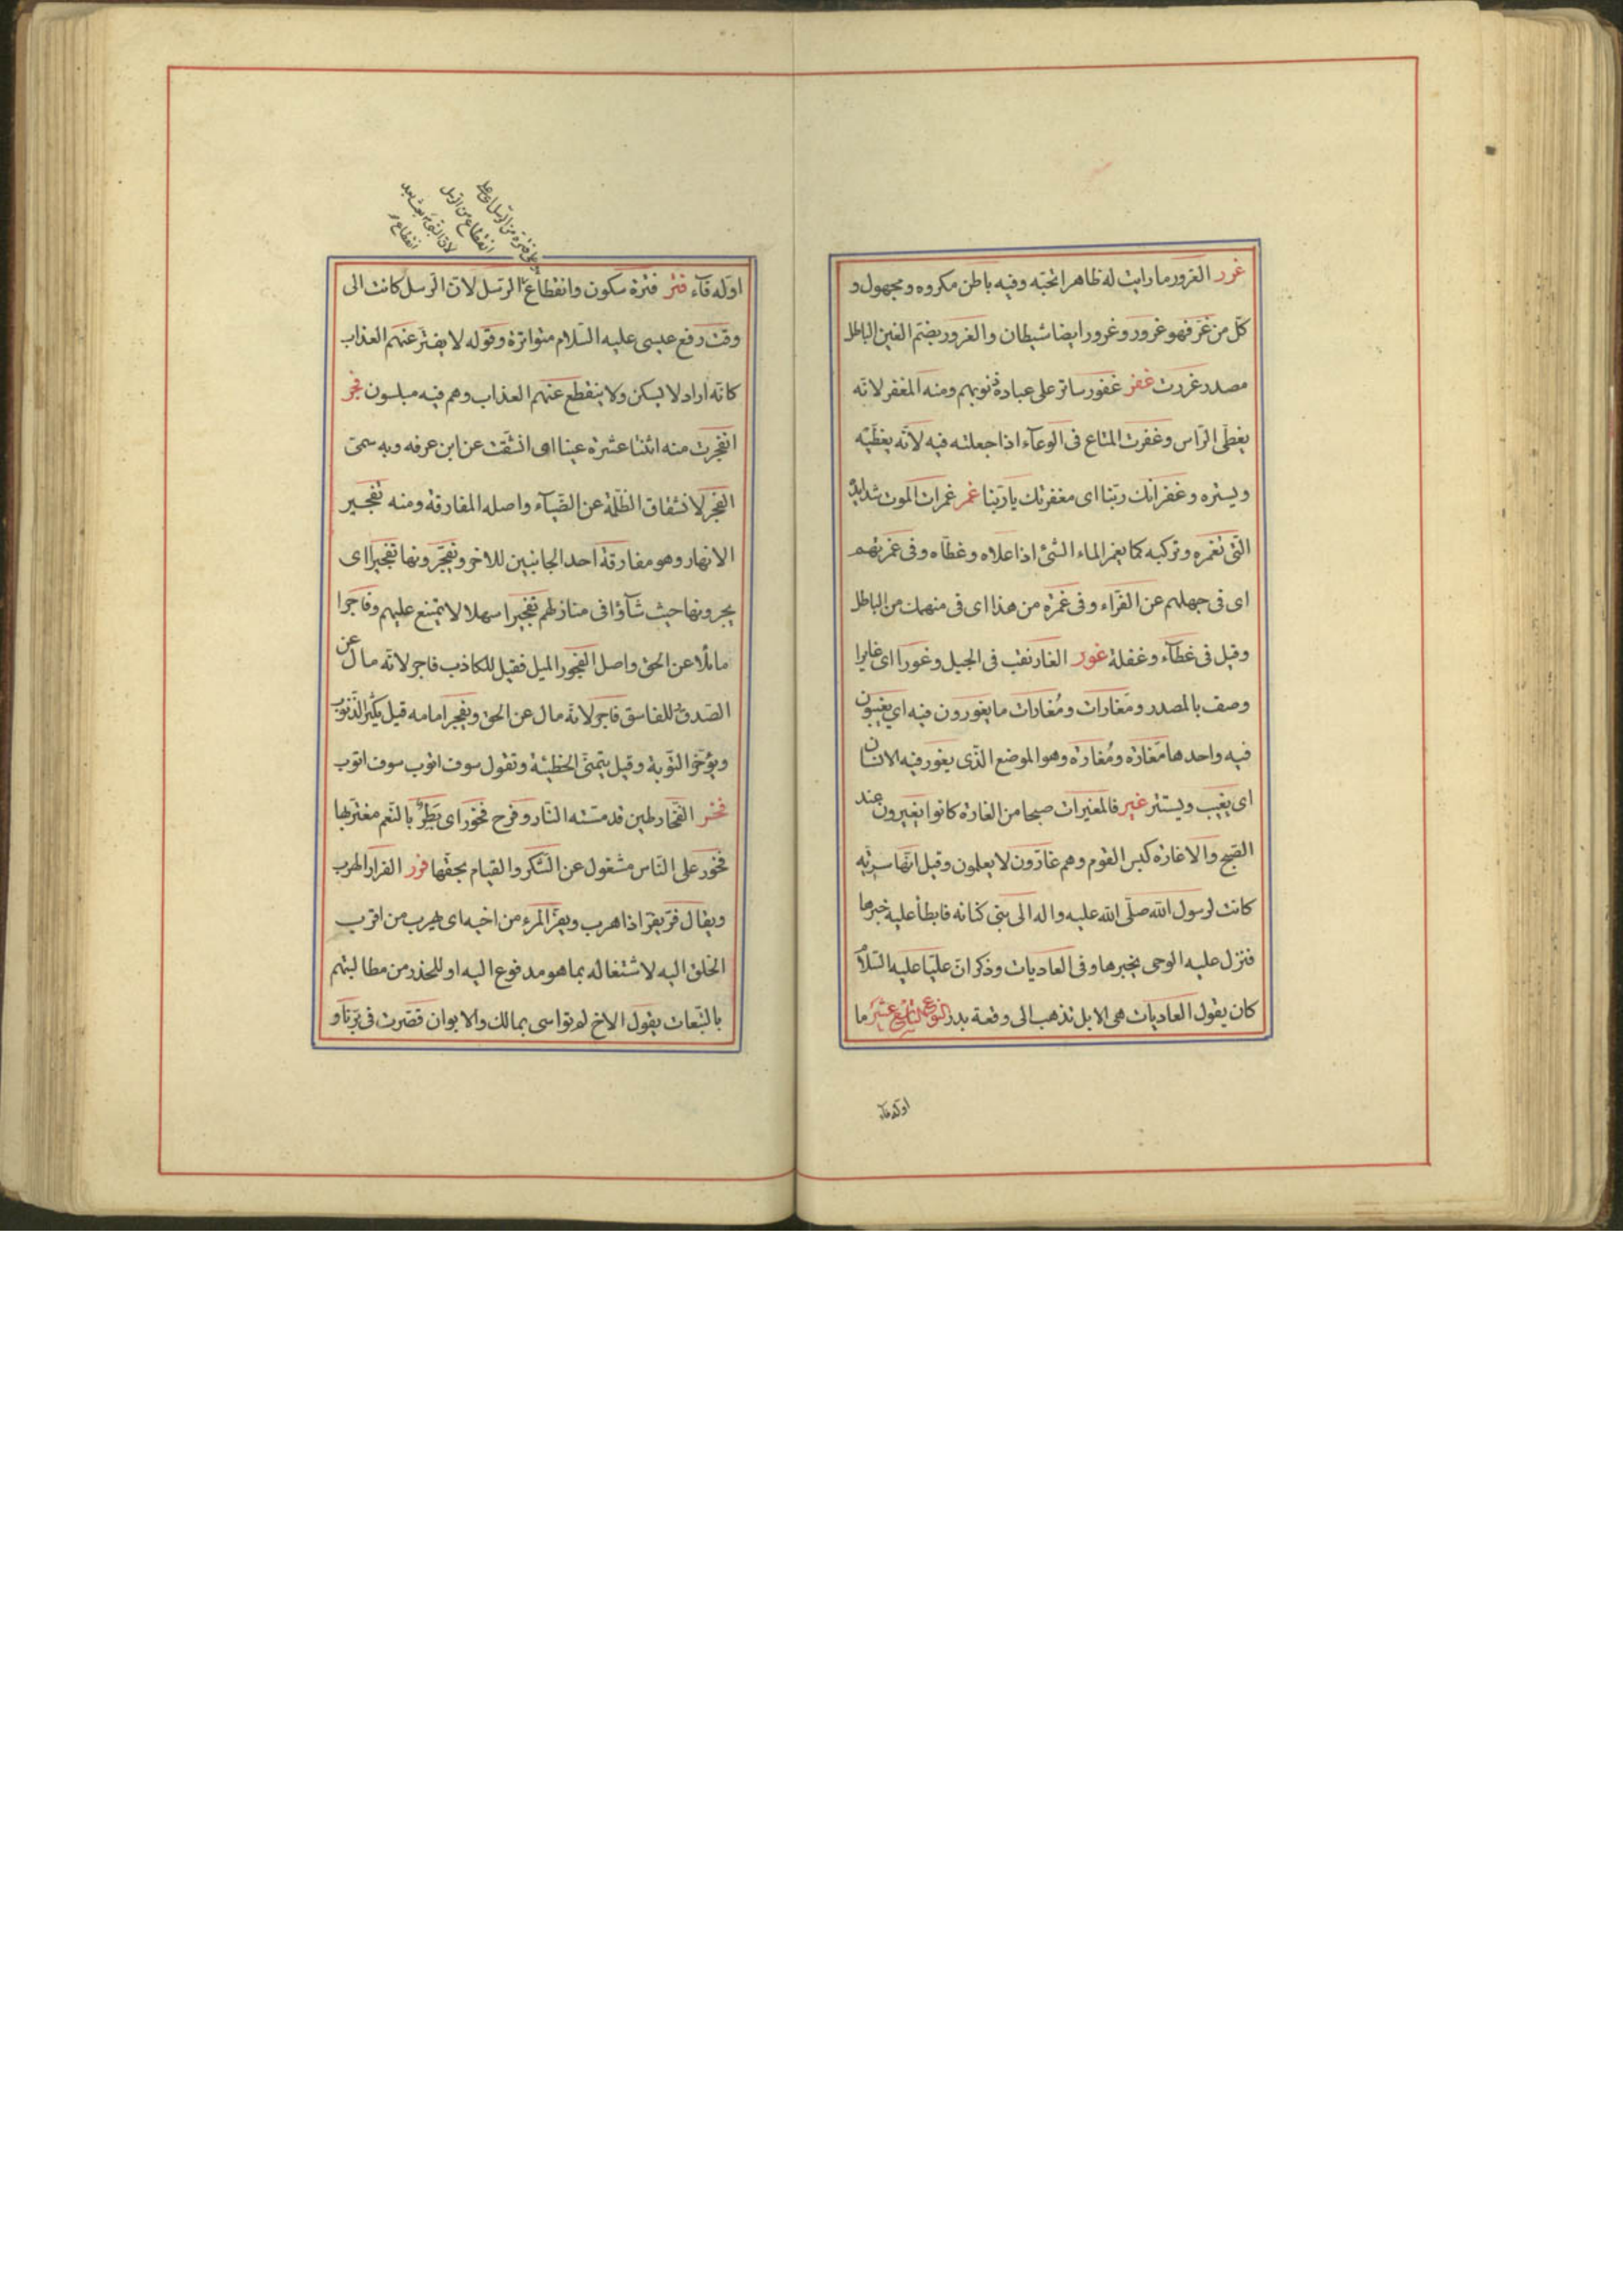 غرر الغرور ما رايت له ظاهرا تحبّه وفيه باطن مكروه ومجهول و
كلّ من غرّ فهو غرور وغرور ايضا شيطان والغرور بضمّ الغين الباطل
مصدر غررت غفر غفور ساتر على عباده ذنوبهم ومنه المغفر لانّه
يغطّى الرّاس وغفرت المتاع فى الوعآء اذا جعلته فيه لانّه يغطّيه
ويستره وغفرانك ربّنا اى مغفرتك يا ربّنا غمر غمرات الموت شدايده
التى تغمره وتركبه كما يغمر الماء الشئ اذا علاه وغطّاه وفى غمرتهم
اى فى جهلهم عن الفرّاء وفى غمرة من هذا اى فى منهمك من الباطل
وقيل فى غطآء وغفلة غور الغار نقب فى الجبل وغورا اى غايرا
وصف بالمصدر ومَغارات ومُغارات ما يغورون فيه اى يغيبون
فيه واحدها مَغارة ومُغارة وهو الموضع الّذى يغور فيه الانسان
اى يغيب ويستتر غير فالمغيرات صبحا من الغارة كانوا يغيرون عند
الصّبح والاغارة كبس القوم وهم غارّون لا يعلمون وقيل انّها سريّه
كانت لرسول الله صلّى الله عليه واله الى بنى كنانه فابطأ عليه خبرها
فنزل عليه الوحى بخبرها وفى العاديات وذكر انّ عليّا عليه السّلام
كان يقول العاديات هى الابل تذهب الى وقعة بدر النوع التاسع عشر ما
اوّله فآء
على فترة من الرّسل اى على
انقطاع من الرّسل
لانّ النبىّ بعث بعد
انقطاع
اوّله فآء فتر فترة سكون وانقطاع الرّسل لانّ الرّسل كانت الى
وقت رفع عيسى عليه السّلام متواترة وقوله لا يفتّر عنهم العذاب
كانّه اراد لا يسكن ولا ينقطع عنهم العذاب وهم فيه مبلسون فجر
انفجرت منه اثنتا عشرة عينا اى انشقّت عن ابن عرفه وبه سمّى
الفجر لانشقاق الظّلمة عن الضّيآء واصله المفارقة ومنه تفجير
الانهار وهو مفارقة احد الجانبين للاخر ويفجّرونها تفجيرا اى
يجرونها حيث شآؤا فى منازلهم تفجيرا سهلا لا يمتنع عليهم وفاجرا
مائلا عن الحق واصل الفجور الميل فقيل للكاذب فاجر لانّه مال عن
الصّدق وللفاسق فاجر لانّه مال عن الحق ويفجر امامه قيل يكثر الذّنوب
ويؤخّر التّوبة وقيل يتمنّى الخطيئة وتقول سوف اتوب سوف اتوب
فخر الفخّار طين قد مسّته النّار وفرح فخور اى بَطِرٌ بالنّعم مغترّ بها
فخور على النّاس مشغول عن الشّكر والقيام بحقّها فرر الفرار الهرب
ويقال فرّ يفرّ اذا هرب ويفرّ المرء من اخيه اى يهرب من اقرب
الخلق اليه لاشتغاله بما هو مدفوع اليه او للحذر من مطالبتهم
بالتّبعات يقول الاخ لم تواسى بمالك والابوان قصّرت فى برّنا و